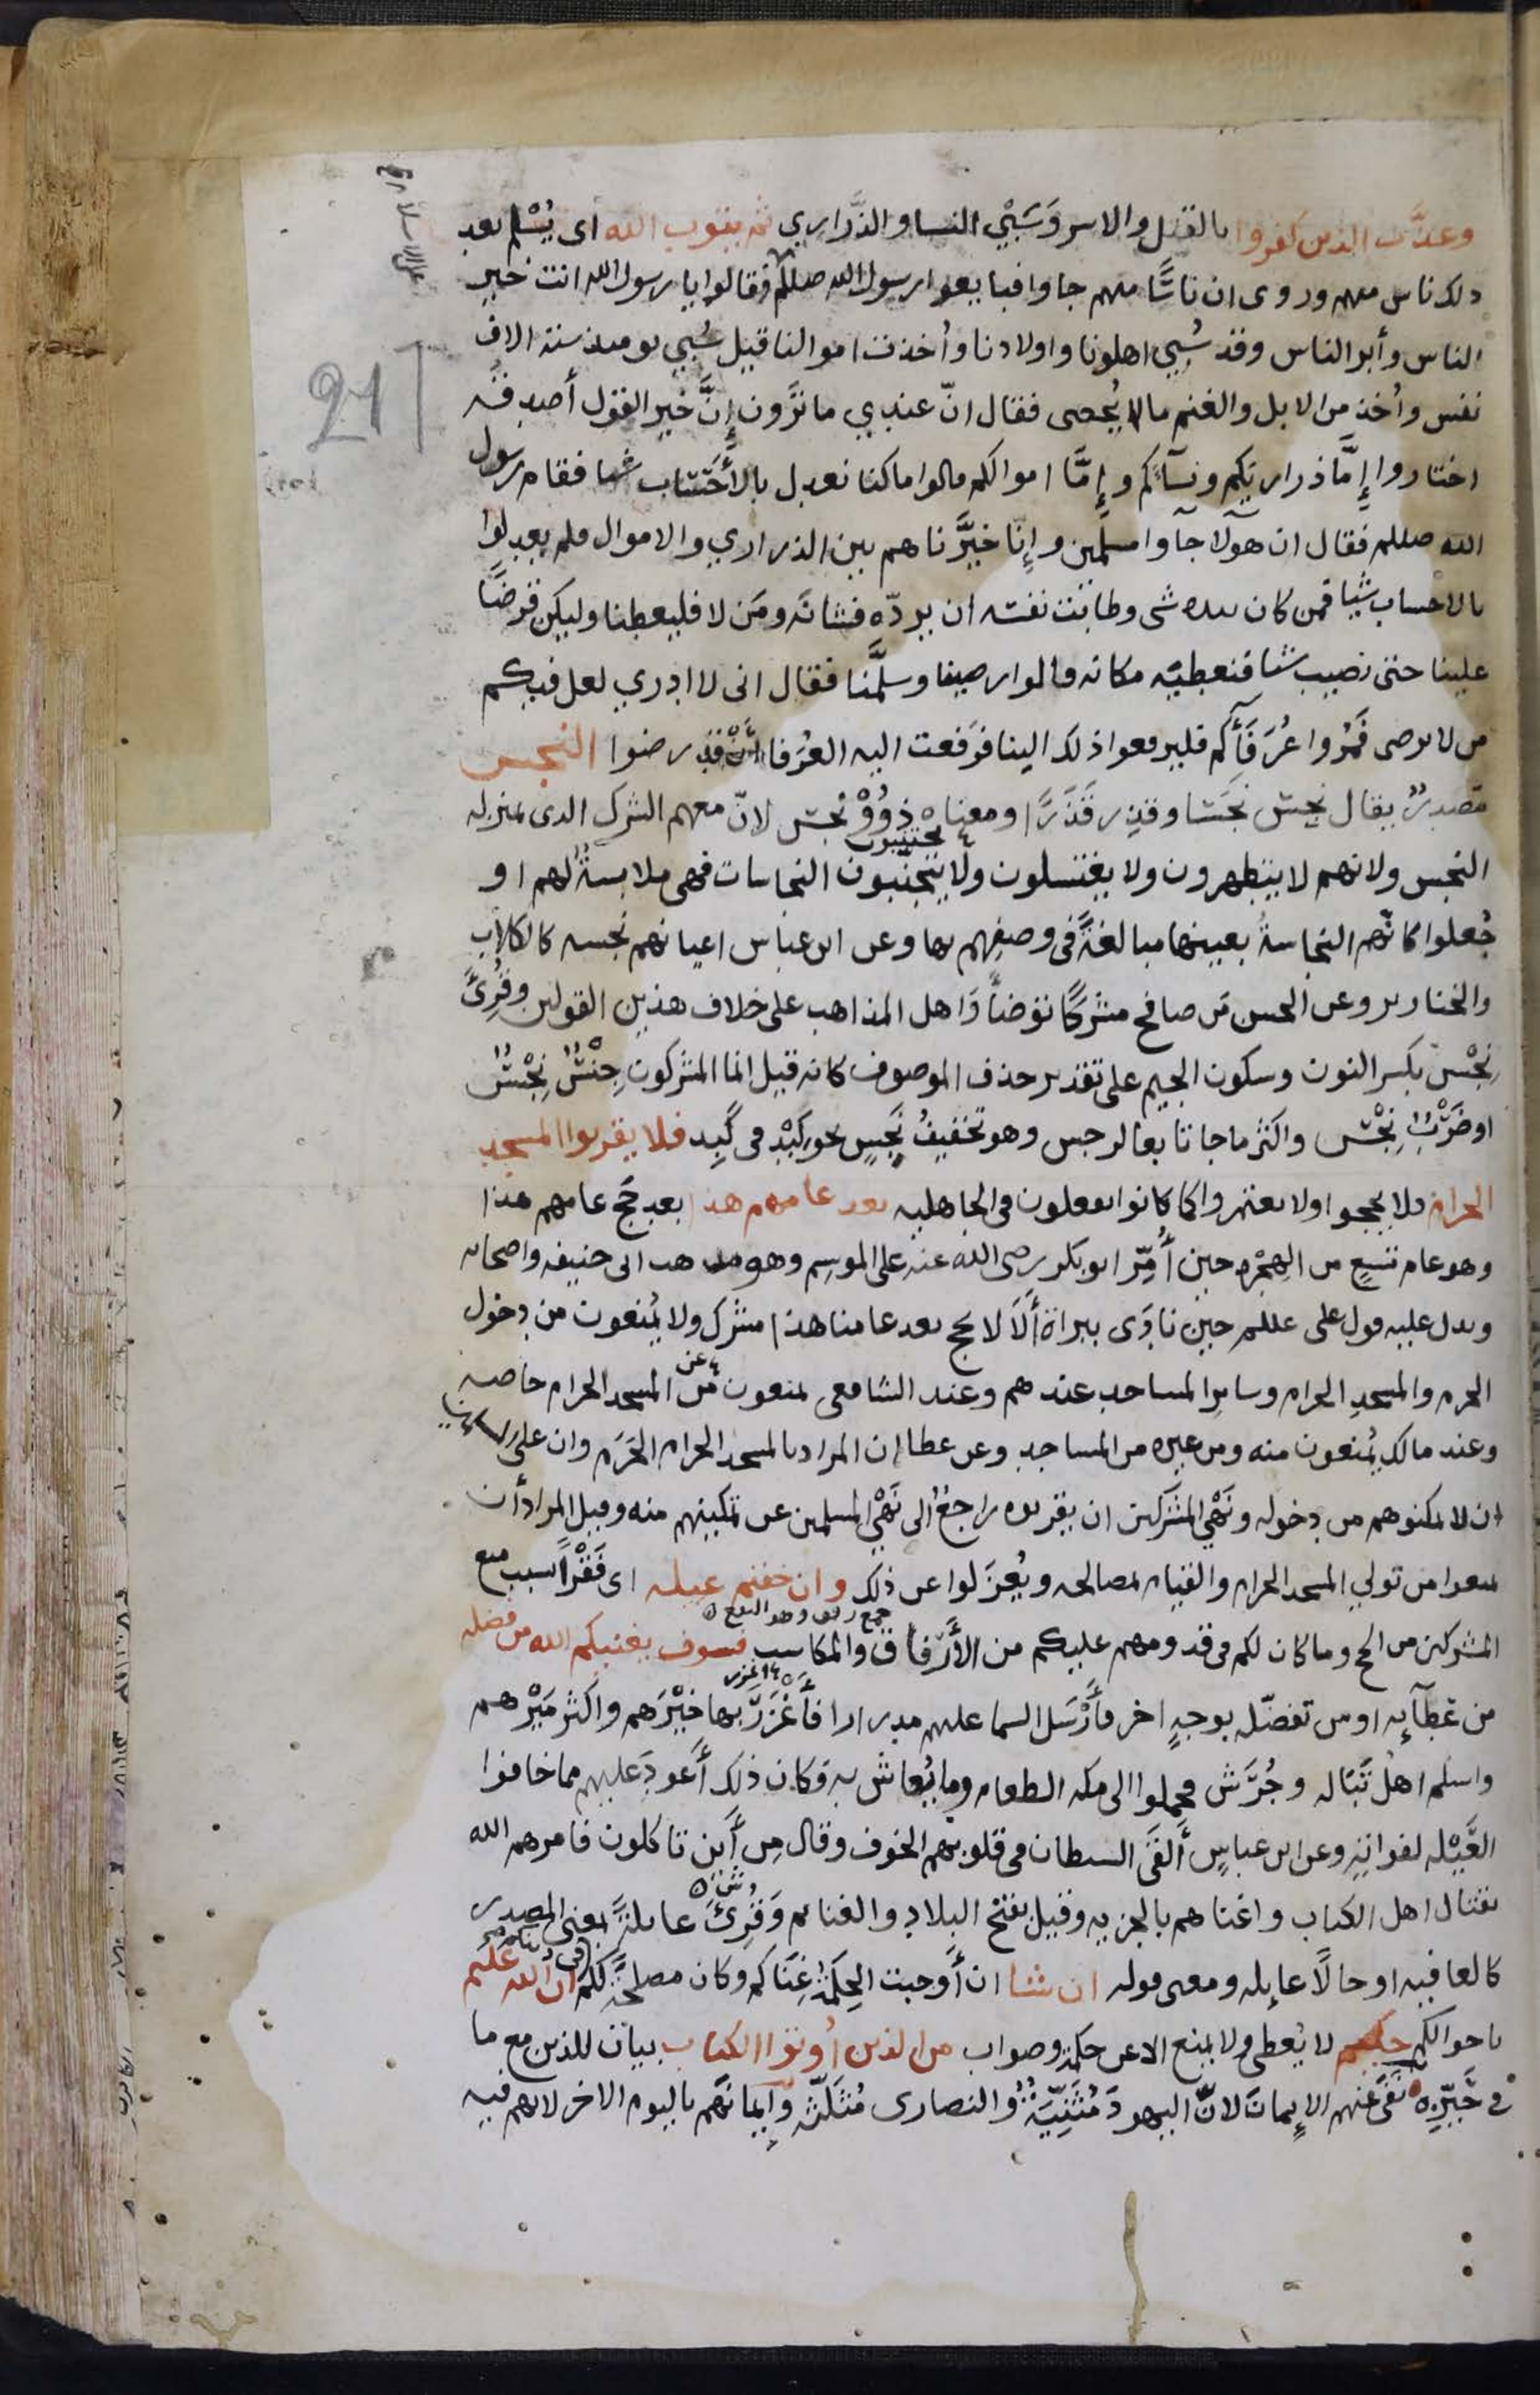 وعذَّب الذين كفروا بالقتل والاسر وَسَبْي النسا والذَّراري ثم يتوب الله اى يُسْلم بعد
ذلك ناس منهم وروى ان ناسًا منهم جاوا فبايعوا رسول الله صللم فقالوا يا رسول الله انت خير
الناس وأبر الناس وقد سُبي اهلونا واولادنا وأُخذت اموالنا قيل سُبي يومئذ ستة الاف
نفس وأُخذ من الابل والغنم مالا يُحصى فقال انّ عندي ما ترَون إِنَّ خير القول أصدقه
اختاروا إِمَّا ذراريكم ونسآكم وإِمَّا اموالكم قالوا ما كنا نعدل بالأَحْسَاب شيا فقام رسول
الله صللم فقال ان هولآ جآوا مسلمين وإِنّا خيَّرناهم بين الذراري والاموال فلم يعدلوا
بالاحساب شيا فمن كان بيده شى وطابت نفسه ان يردّه فشانه ومَن لا فليعطنا وليكن قرضًا
علينا حتى نصيب شيا فنعطيَه مكانه قالوا رضينا وسلَّمنا فقال انى لا ادري لعل فيكم
من لا يرضى فمُروا عُرَفَآكم فليرفعوا ذلك الينا فرَفعت اليه العُرَفا أَنْ قد رضوا النجس
مصدرٌ يقال نجِسَ نجَسًا وقذِر قَذَرًا ومعناه ذَوُوْ نجس لانّ معهم الشرك الذى بمنزلة
النجس ولانهم لا يتطهرون ولا يغتسلون ولا يتجنّبون النجاسات فهى ملابسةٌ لهم او
يجتنبون
جُعلوا كانهم النجاسةُ بعينها مبالغةً فى وصفهم بها وعن ابن عباس اعيانهم نجسه كالكلاب
والخنازير وعن الحسن مَن صافح مشركًا توضأ وَاهل المذاهب على خلاف هذين القولين وقُرِئَ
نِجْس بكسر النون وسكون الجيم على تقدير حذف الموصوف كانه قيل انما المشركون جِنْسٌ نِجْسٌ
او ضَرْبٌ نِجْس واكثر ما جا تابعا لرجس وهو تخفيفُ نَجِسٍ نحو كِبْدٍ فى كَبِد فلا يقربوا المسجد
الحرام فلا يحجوا ولا يعتمروا كما كانوا يفعلون فى الجاهليه بعد عامهم هذا بعد حَج عامهم هذا
وهو عام تسعٍ من الهِجْره حين أُمِّر ابو بكر رضى الله عنه على الموسِم وهو مذهب ابى حنيفه واصحابه
ويدل عليه قول على عللم حين نادَى ببراة أَلَا لا يحج بعد عامنا هذا مشرك ولا يُمنعون من دخول
الحرم والمسجدِ الحرام وسايرِ المساجد عندهم وعند الشافعى يمنعون من المسجد الحرام خاصه
عن
وعند مالك يُمنعون منه ومن غيره من المساجد وعن عطا ان المراد بالمسجد الحرام الحَرَم وان على المسلمين
ان لا يمكنوهم من دخوله ونَهْي المشركين ان يقربوه راجعٌ الى نَهْي المسلمين عن تمكينهم منه وقيل المراد أن
يمنعوا من تولي المسجد الحرام والقيام لمصالحه ويُعزَلوا عن ذلك وان خفتم عيله اى فَقْرًا بسبب منع
جمع رفق وهو النفع
المشركين من الحج وما كان لكم فى قدومهم عليكم من الأَرْفاق والمكاسب فسوف يغنيكم الله من فضله
من عَطآيِه او من تفضّله بوجهٍ اخر فأَرْسَل السما عليهم مدرارا فأَغْزَرَ بها خَيْرَهم واكثر مَيْرهم
واسلم اهل تَبَاله وجُرَش فحملوا الى مكه الطعام وما يُعاش به فكان ذلك أَعود عليهم مما خافوا
العَيْله لفواتِه وعن ابن عباسٍ أَلقَى الشيطان فى قلوبهم الخوف وقال مِن أَين تاكلون فامرهم الله
بقتال اهل الكتاب واغناهم بالجزيه وقيل بفتح البلاد والغنايم وَقُرِئَ عايلةً بمعنى المصدر
كالعافيه او حالًا عايله ومعنى قوله ان شا ان أَوجبت الحِكمَةُ غِنَاكم وكان مصلحةً لكم ان الله عَليم
باحوالكم حكيم لا يُعطى ولا يمنع الا عن حكمة وصواب من الذين أُوتوا الكتاب بيان للذين مع ما
فى حَيّزه نَفَى عنهم الإِيمان لانّ اليهود مُثَنِّيَةٌ والنصارى مُثَلّثه وَايمانهم باليوم الاخر لانهم فيه